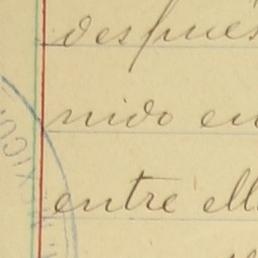 después
nido en
entre ell